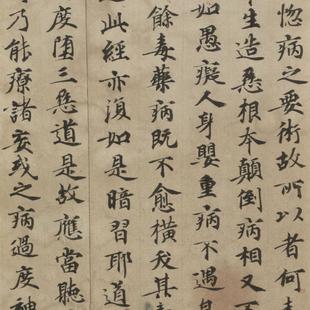 惚病之要術故所以者何
生造惡根本顛倒病相又
如愚癡人身嬰重病不遇
餘毒藥病既不愈橫夭其
此經亦復如是暗習耶道
度墮三惡道是故應當聽
乃能療諸妄或之病過度神